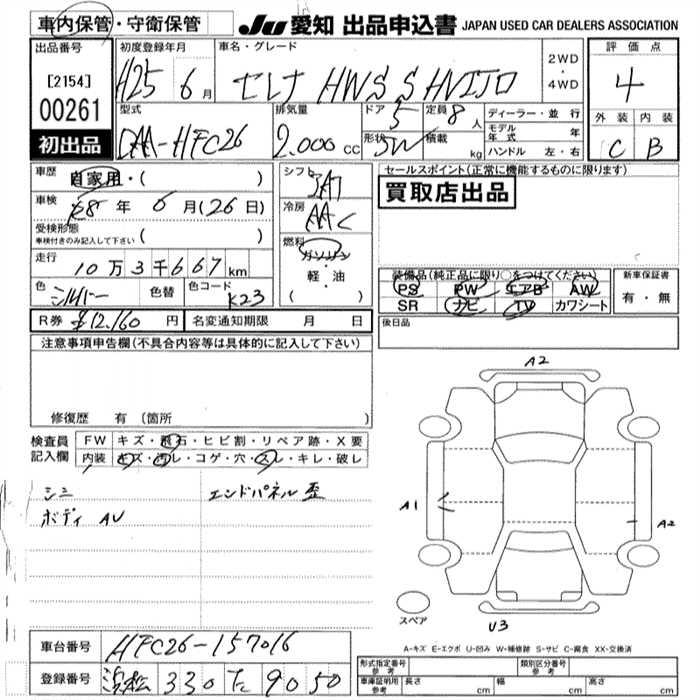 車内保管・守衛保管 JU 愛知 出品申込書 JAPAN USED CAR DEALERS ASSOCIATION
出品番号 [2154] 00261 初出品
初度登録年月 H25 6月
車名・グレード セレナ HWS S HVIJO
2WD・4WD
評価点 4
外装 C 内装 B
型式 DAA-HFC26
排気量 2.000 CC
ドア 5 定員 8人
形状 SW 積載 kg
ディーラー・並行
モデル年式 年
ハンドル 左・右
車歴 自家用・( )
車検 R8年 6月(26日)
受検形態 車検付きのみ記入して下さい ( )
走行 10万3千667km
色 シルバー 色替 色コード K23
シフト IAT
冷房 AAC
燃料 ガソリン・軽・油 ( )
セールスポイント(正常に機能するものに限ります)
買取店出品
装備品(純正品に限り○をつけてください)
PS PW エアB AW
SR ナビ TV カワシート
新車保証書 有・無
R券 ¥12,160円 名変通知期限 月 日
後日品
注意事項申告欄(不具合内容等は具体的に記入して下さい)
修復歴 有 (箇所 )
検査員記入欄
FW キズ・飛石・ヒビ割・リペア跡・X要
内装 キズ・汚レ・コゲ・穴・スレ・キレ・破レ
シミ エンドパネル歪
ボディ AU
A2
A1
A2
スペア
U3
A-キズ E-エクボ U-凹み W-補修跡 S-サビ C-腐食 XX-交換済
車台番号 HFC26-157016
登録番号 浜松 330 た 9050
形式指定番号 参考 類別区分番号 参考
車庫証明用 参考 長さ cm 幅 cm 高さ cm